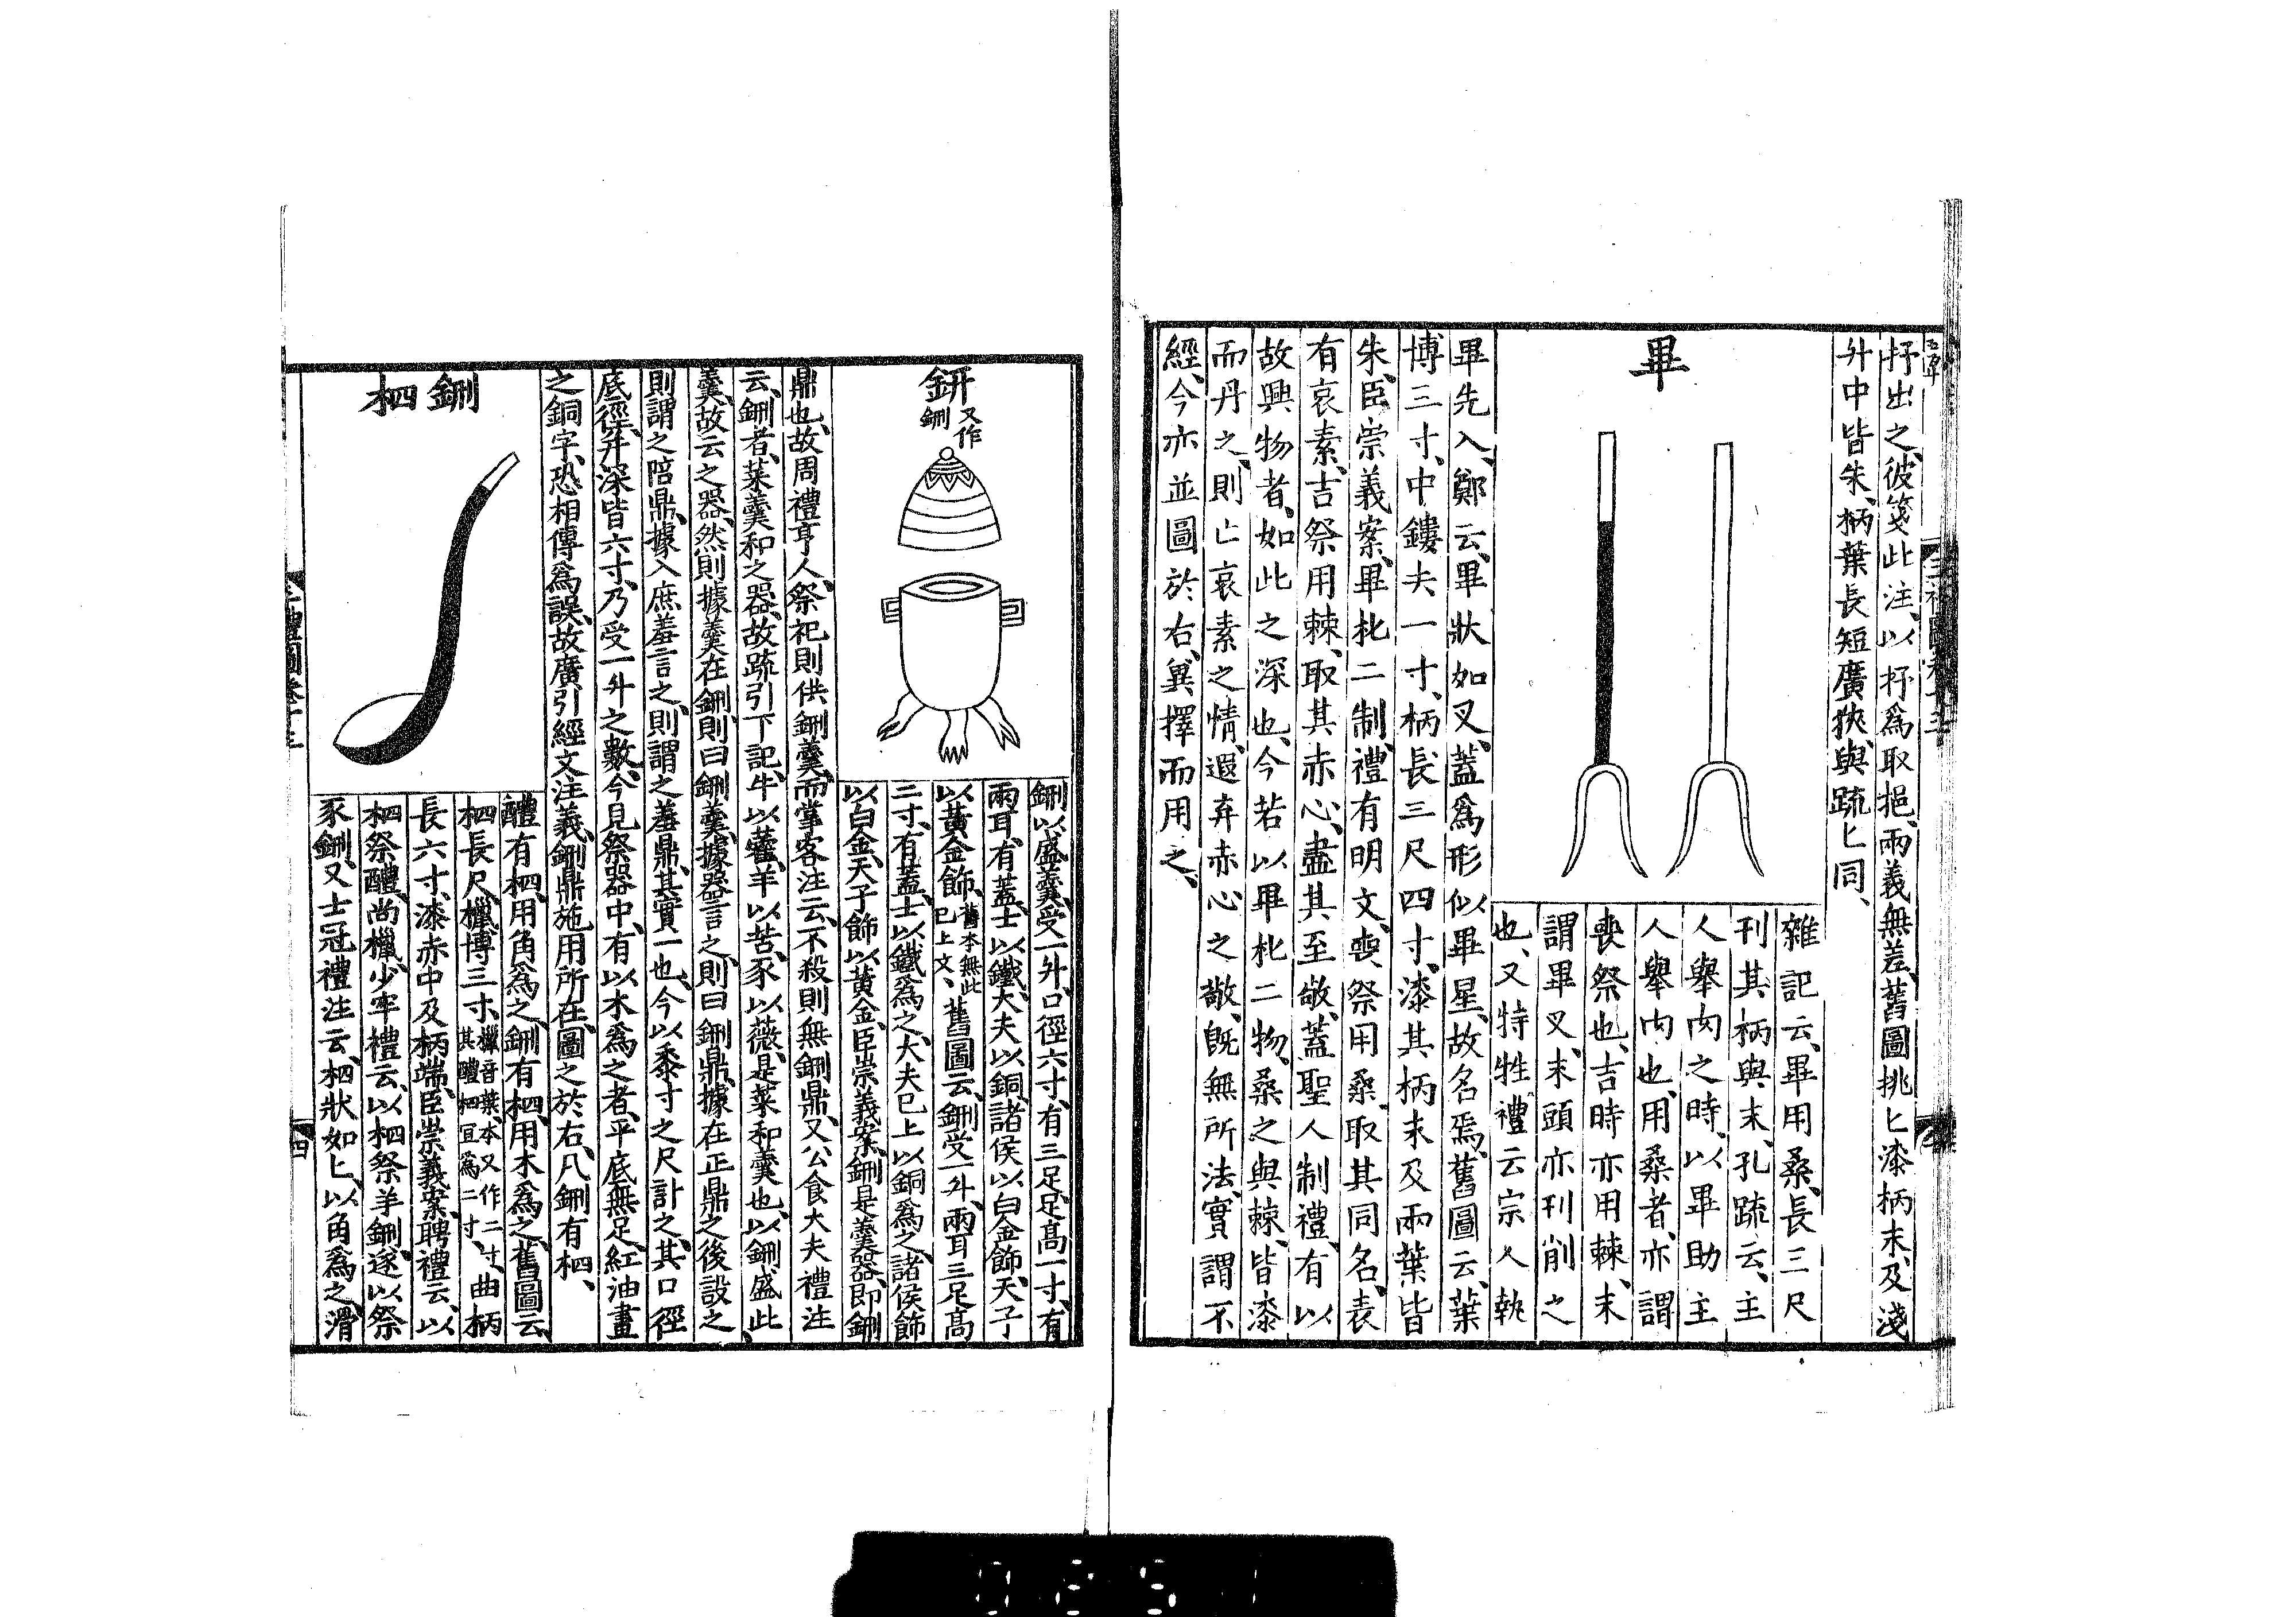 抒出之、彼箋此注、以抒爲取挹、兩義無差、舊圖挑匕漆柄末、及淺
升中皆朱、柄葉長短廣狹、與疏匕同、
畢
雜記云、畢用桑、長三尺
刊其柄與末、孔疏云、主
人舉肉之時、以畢助主
人舉肉也、用桑者、亦謂
喪祭也、吉時亦用棘、末
謂畢叉、末頭亦刊削之
也、又特牲禮云宗人執
畢先入、鄭云、畢狀如叉、蓋爲形似畢星、故名焉、舊圖云、葉
博三寸、中鏤去一寸、柄長三尺四寸、漆其柄末及兩葉皆
朱、臣崇義案、畢朼二制、禮有明文、喪祭用桑、取其同名、表
有哀素、吉祭用棘、取其赤心、盡其至敬、蓋聖人制禮、有以
故興物者、如此之深也、今若以畢朼二物、桑之與棘、皆漆
而丹之、則亡哀素之情、遐弃赤心之敬、旣無所法、實謂不
經、今亦並圖於右、冀擇而用之、
鈃 又作鉶
鉶以盛羹、受一升、口徑六寸、有三足、足高一寸、有
兩耳、有蓋、士以鐵、大夫以銅、諸侯以白金飾、天子
以黃金飾、舊本無此巳上文、舊圖云、鉶受一升、兩耳三足高
二寸、有蓋、士以鐵爲之、大夫巳上以銅爲之、諸侯飾
以白金、天子飾以黃金、臣崇義案、鉶是羹器、卽鉶
鼎也、故周禮亨人、祭祀則供鉶羹、而掌客注云、不殺則無鉶鼎、又公食大夫禮注
云、鉶者、菜羹和之器、故疏引下記、牛以藿、羊以苦、豕以薇、是菜和羹也、以鉶盛此
羹、故云之器、然則據羹在鉶、則曰鉶羹、據器言之、則曰鉶鼎、據在正鼎之後設之、
則謂之陪鼎、據入庶羞言之、則謂之羞鼎、其實一也、今以黍寸之尺計之、其口徑
底徑、幷深皆六寸、乃受一升之數、今見祭器中、有以木爲之者、平底無足、紅油畫
之銅字、恐相傳爲誤、故廣引經文注義、鉶鼎施用所在、圖之於右、凡鉶有柶、
鉶柶
醴有柶、用角爲之、鉶有柶、用木爲之、舊圖云、
柶長尺、樴博三寸、樴音葉、本又作二寸、其醴柶宜爲二寸、曲柄
長六寸、漆赤中及柄端、臣崇義案、聘禮云、以
柶祭醴、尚樴、少牢禮云、以柶祭羊鉶、遂以祭
豕鉶、又士冠禮注云、柶狀如匕、以角爲之、滑
三禮圖卷十三
四